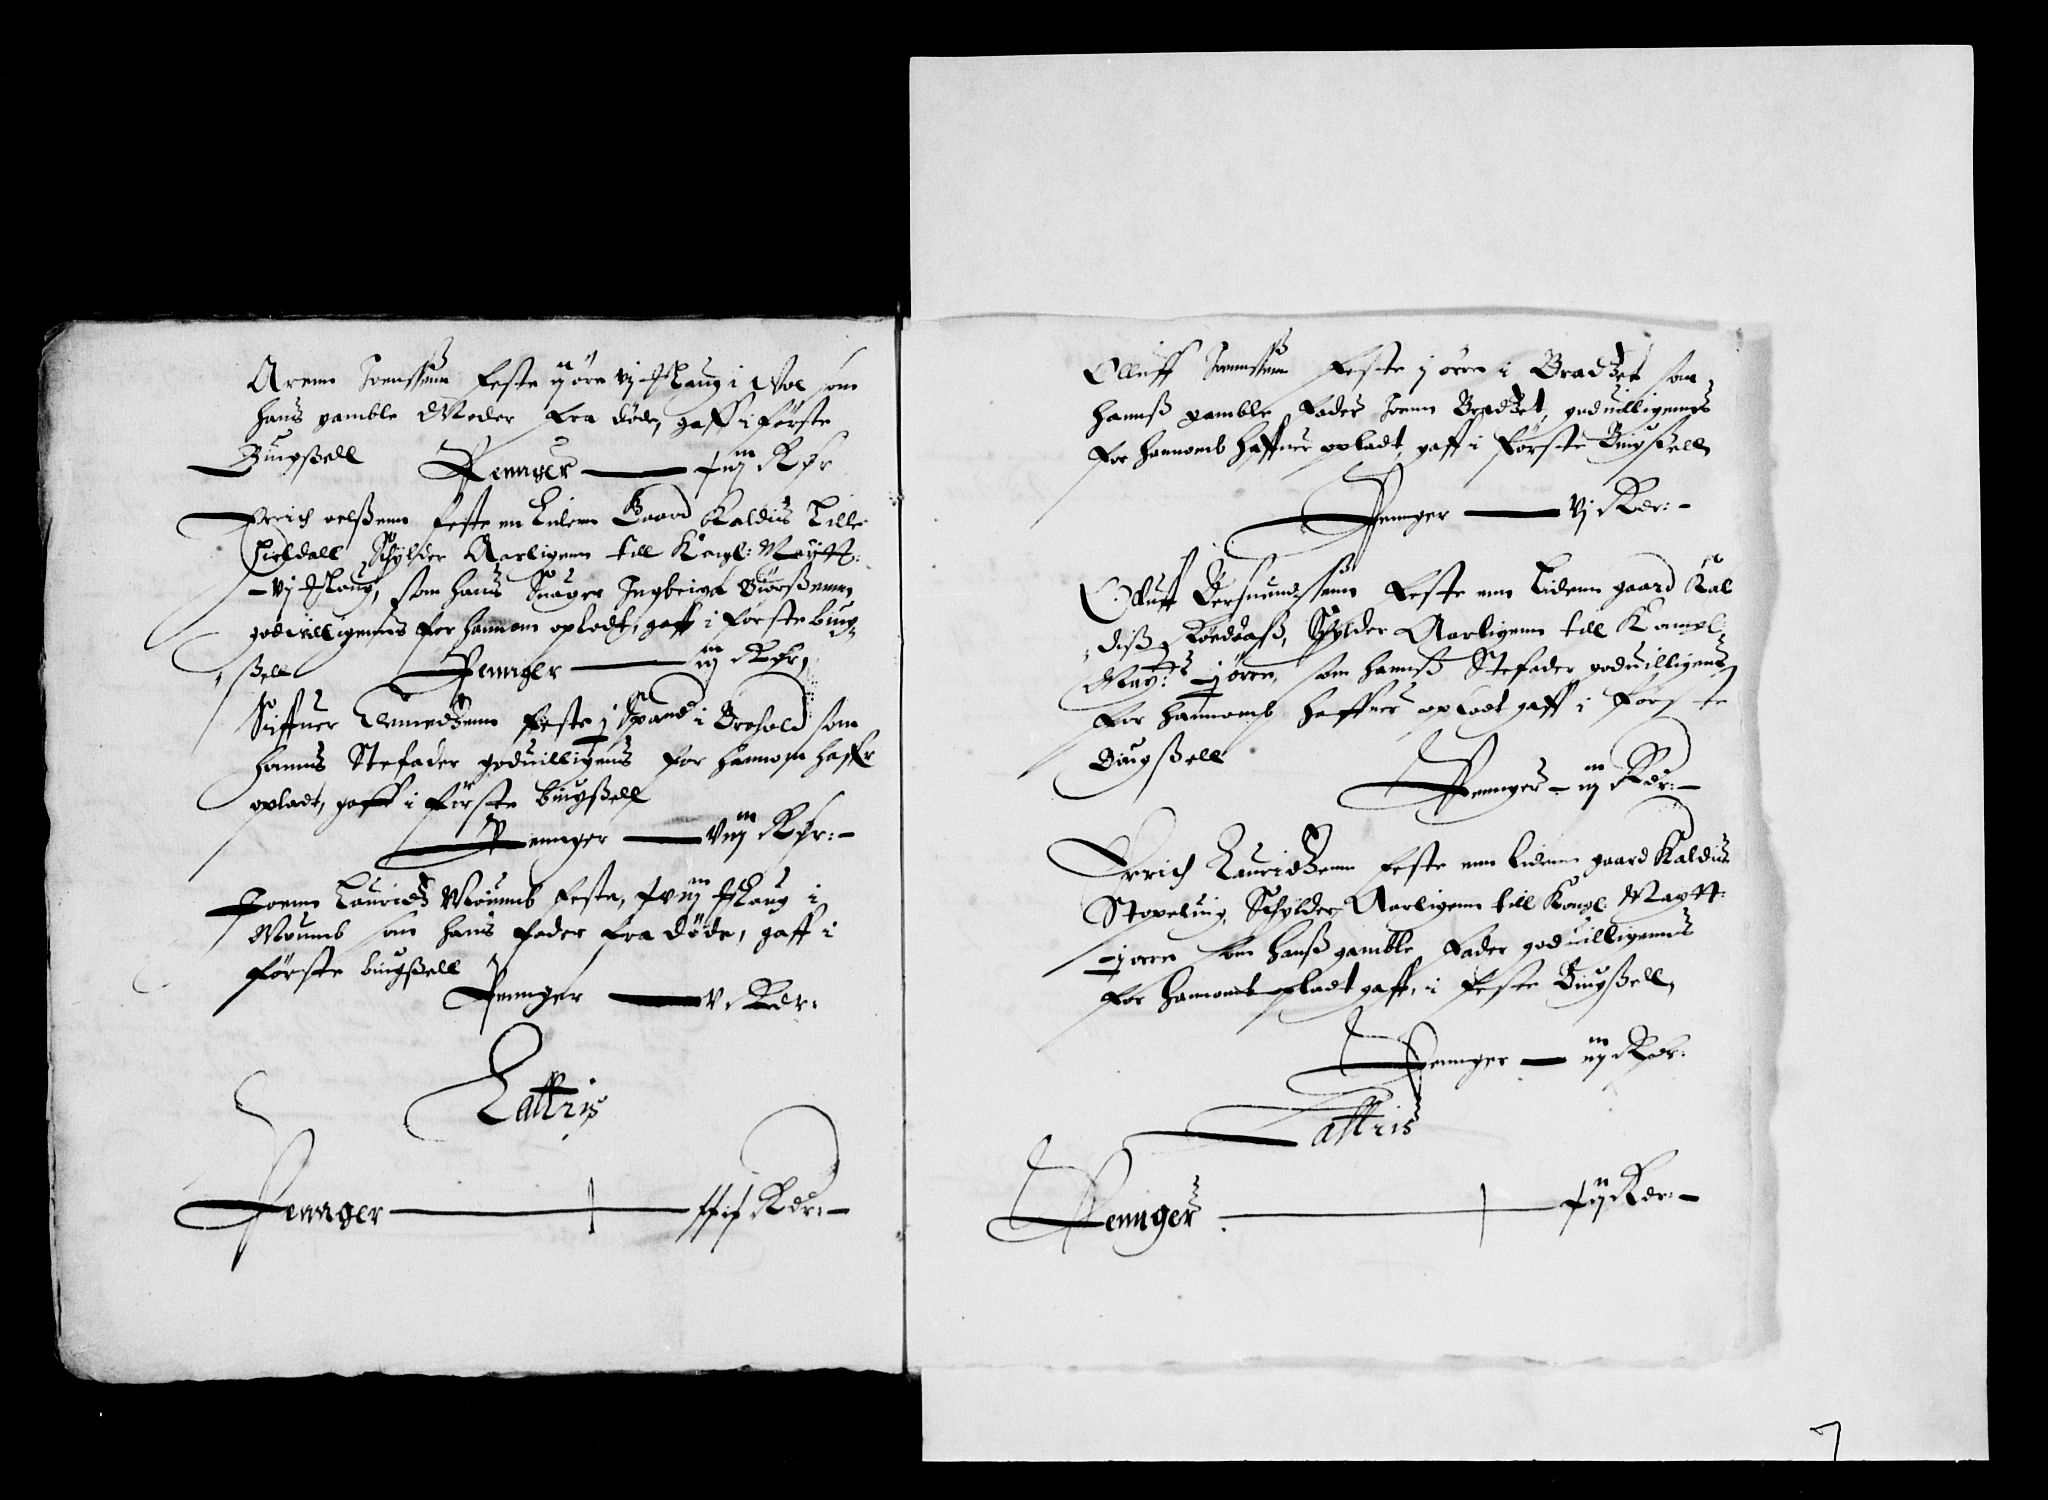 Arenn Joenssønn feste ij öre vj Marg i Vol som
hans gamble Moder fra døde, gaff i første
Biugsell Penniger — xiij Rdr
Errich oelssenn feste en liden Gaard Kaldis Lille
Lieldall Schylder Aarligenn till Kongl: Maytt:
vj Marg, som hans Suager Ingbrigt
goduilligenns for hannom opladt, gaff i første biug-
sell Penniger — iij Rdr
Siffuer feste j Spand i som
hanns Stefader goduilligens for hannom haffr
opladt, gaff i første biugsell
Penniger — viij Rdr: —
Joenn Lauridtz Moumb feste, xviij Marg i
Moumb som hans fader fra döde, gaff i
första biugsell
Penniger — v Rdr:
Lattris
Penniger — xxix Rdr: —
Olluff Joennssenn feste j örre i Bradset som
hannss gamble fader Joenn Bradset, goduilligenns
for hannomb haffuer opladt, gaff i første Biugsell
Penniger — vj Rdr: —
Olluff feste enn lidenn gaard Kal
diss Röedaass, Schylder Aarligenn till Konngl:
Maytts: j ören, som hannss Stefader goduilligens
for hannomb haffuer opladt gaff i förs te
Biugsell
Penniger — iij Rdr: —
Errich Lauridtzenn feste enn lidenn gaard Kaldis
Stopeling, Schylder Aarligenn till Kongl Maytt:
j ören som hanss gamble fader goduilligenns
for hannomb opladt gaff, i feste Biugsell,
Penniger — iij Rdr:
Lattris
Penniger — xij Rdr: —
7